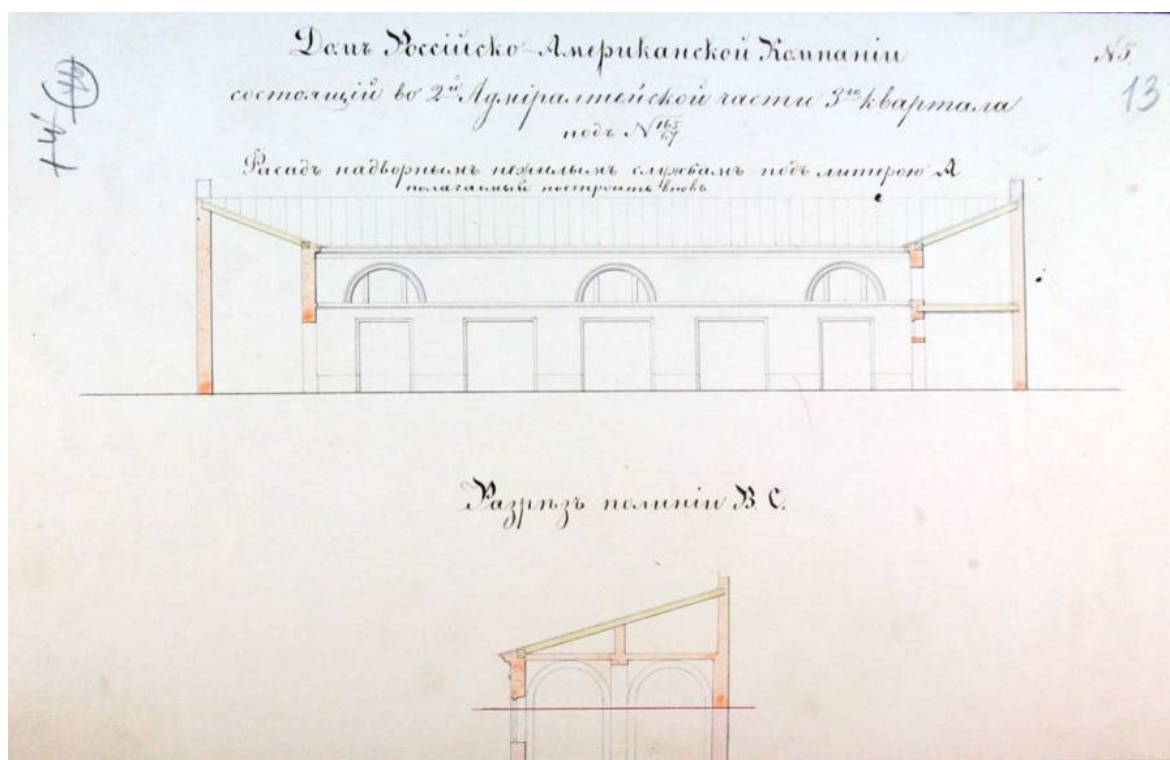 Домъ Россійско-Американской Компаніи
№5.
состоящій во 2й Адміралтейской части 3го квартала
13
подъ № 165/67
Фасадъ надворнымъ нежилымъ службамъ подъ литерою А
полагаемый построить вновь
Разрѣзъ полиніи В. С.